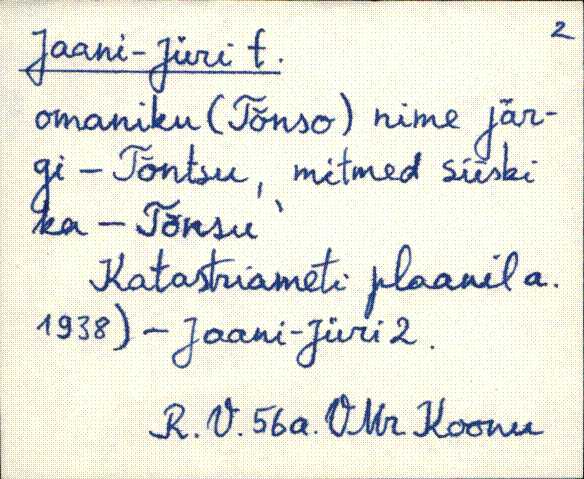 2
Jaani-Jüri t.
omaniku (Tõnso) nime jär-
gi - Tõntsu, mitmed siiski
ka - Tõnsu
Katastriameti plaanil a.
1938) - Jaani-Jüri 2.
R. V. 56a. VMr Koonu